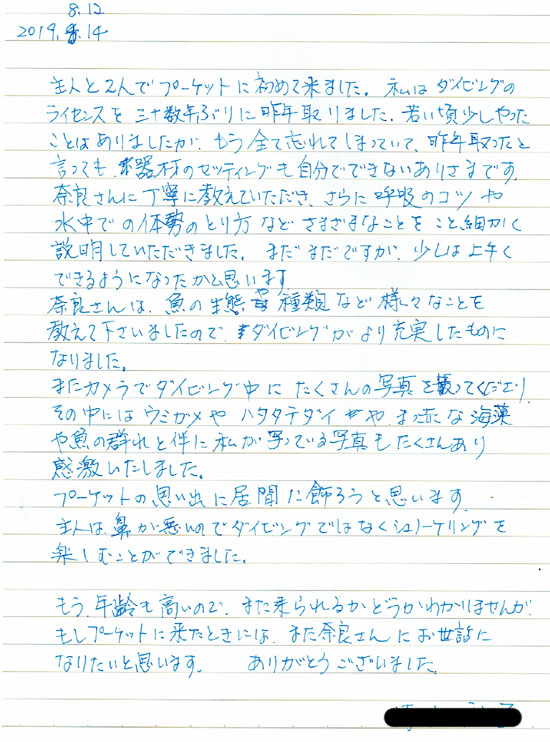 8.12
2019. 8.14
主人と2人でプーケットに初めて来ました。私はダイビングの
ライセンスを三十数年ぶりに昨年取りました。若い頃少しやった
ことはありましたが、もう全て忘れてしまっていて、昨年取ったと
言っても、器材のセッティングも自分でできないありさまです。
奈良さんに丁寧に教えていただき、さらに呼吸のコツや
水中での体勢のとり方などさまざまなことをこと細かく
説明していただきました。まだまだですが、少しは上手く
できるようになったかと思います
奈良さんは、魚の生態 種類など様々なことを
教えて下さいましたので、ダイビングがより充実したものに
なりました。
またカメラでダイビング中にたくさんの写真を撮ってくださり
その中にはウミガメやハタタテダイや、まっ赤な海藻
や魚の群れと伴に私が写っている写真もたくさんあり
感激いたしました。
プーケットの思い出に居間に飾ろうと思います。
主人は、鼻が悪いのでダイビングではなくシュノーケリングを
楽しむことができました。
もう、年齢も高いので、また来られるかどうかわかりませんが、
もしプーケットに来たときには、また奈良さんにお世話に
なりたいと思います。 ありがとうございました。